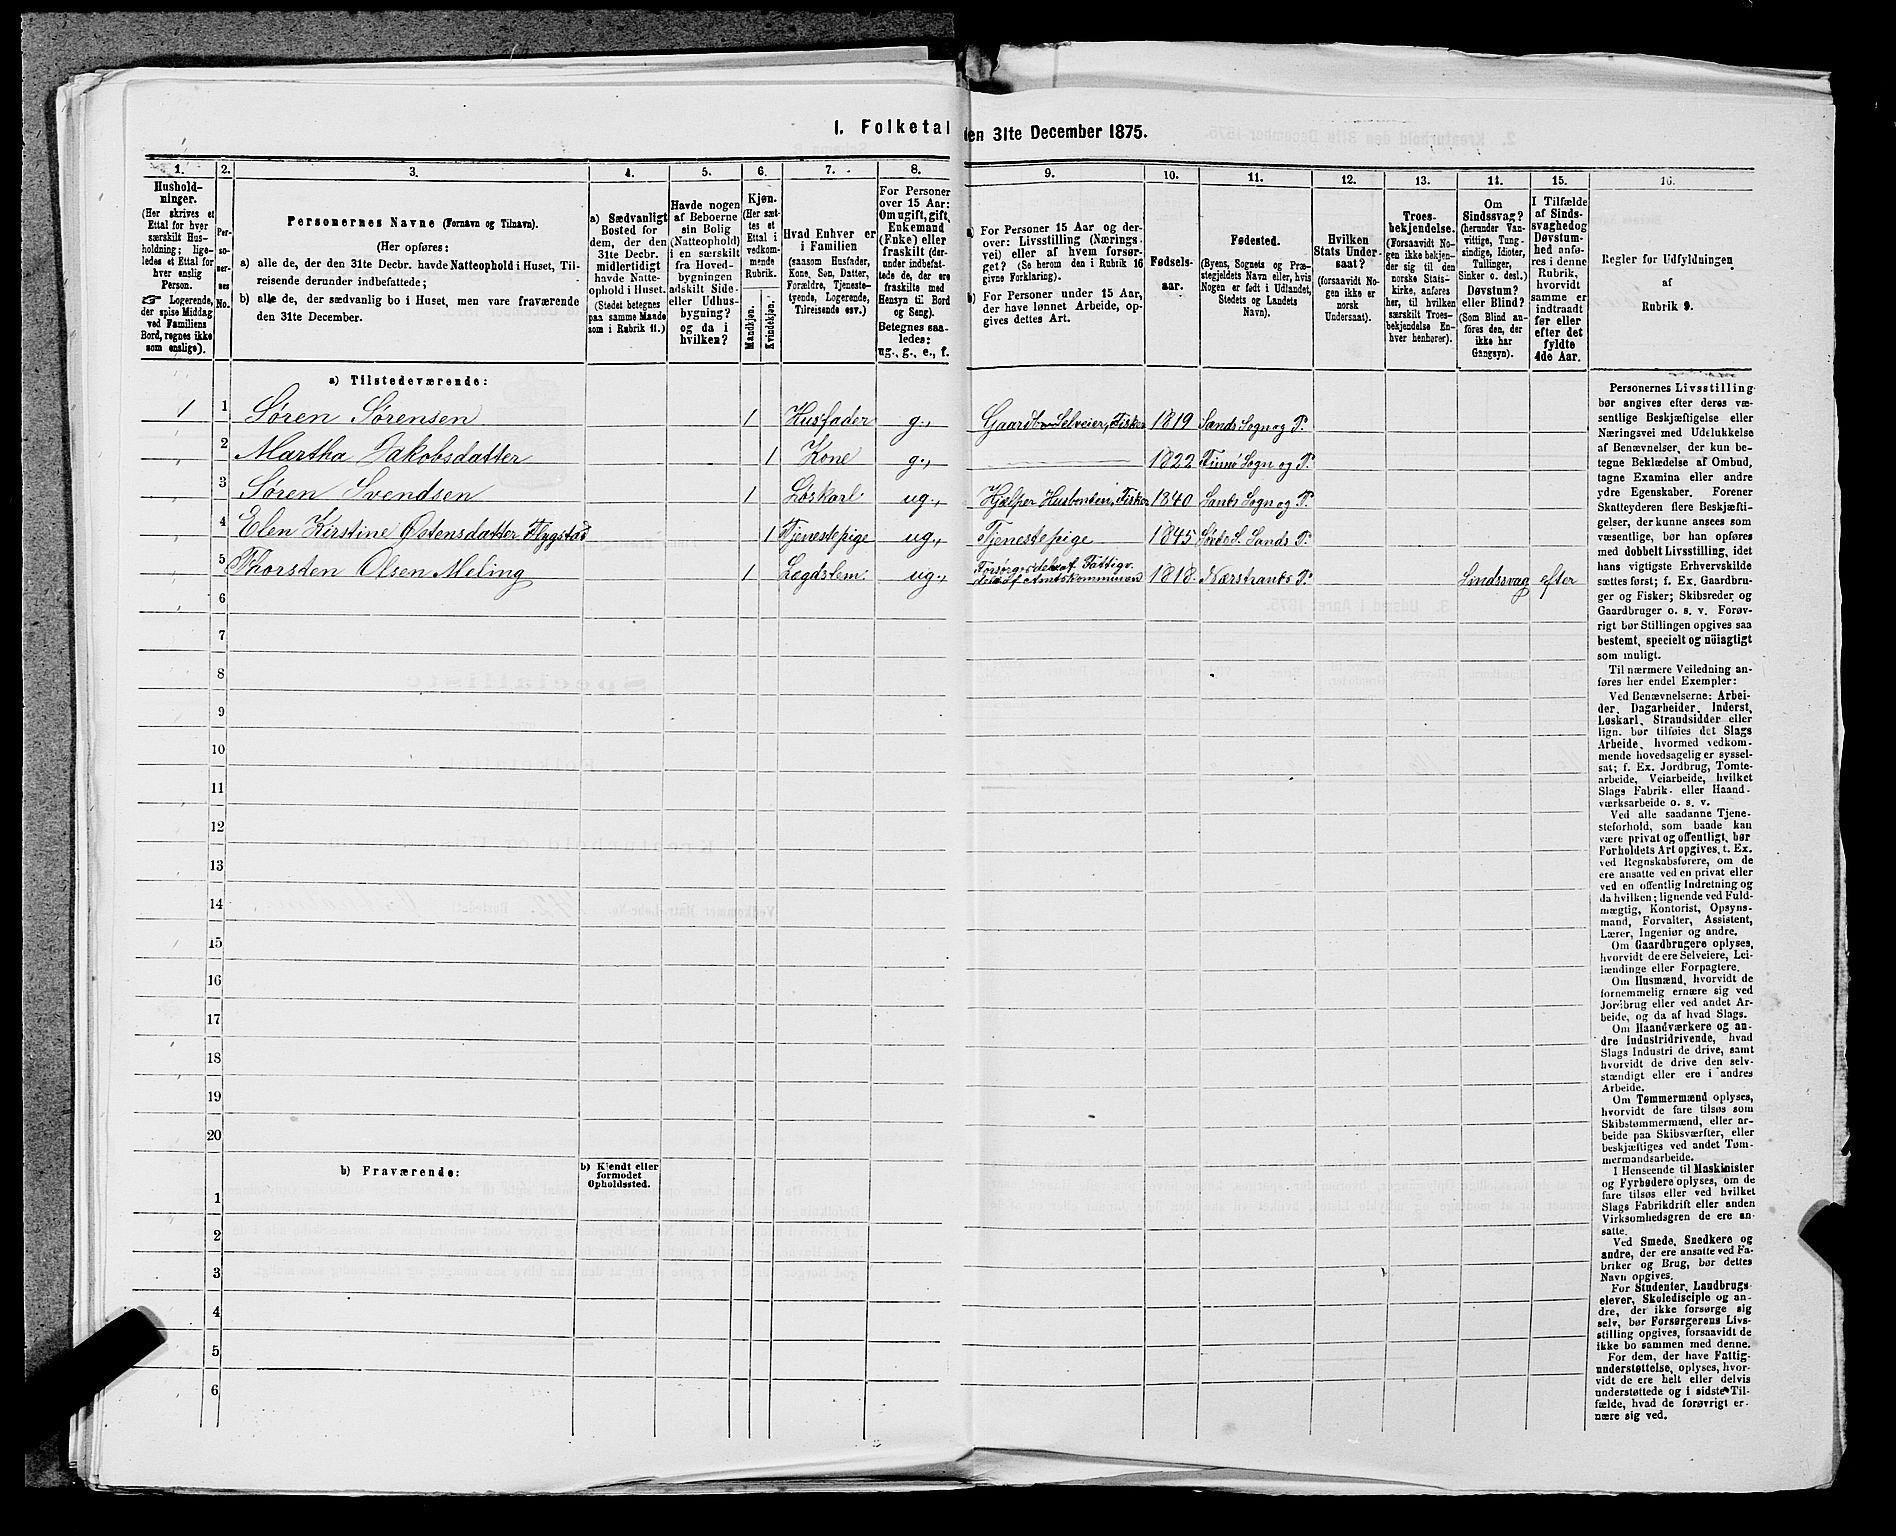 I. Folketal den 31te December 1875.
1. 2. 3. 4. 5. 6. 7. 8. 9. 10. 11. 12. 13. 14. 15. 16.
Hushold-
ninger.
(Her skrives et
Ettal for hver
særskilt Hus-
holdning; lige-
ledes et Ettal for
hver enslig
Person.
☞ Logerende,
der spise Middag
ved Familiens
Bord, regnes ikke
som enslige).
Per-
so-
ner-
nes
No.
Personernes Navne (Fornavn og Tilnavn).
(Her opføres:
a) alle de, der den 31te Decbr. havde Natteophold i Huset, Til-
reisende derunder indbefattede;
b) alle de, der sædvanlig bo i Huset, men vare fraværende
den 31te December.
a) Sædvanligt
Bosted for
dem, der den
31te Decbr.
midlertidigt
havde Natte-
ophold i Huset.
(Stedet betegnes
paa samme Maade
som i Rubrik 11.)
Havde nogen
af Beboerne
sin Bolig
(Natteophold)
i en særskilt
fra Hoved-
bygningen
adskilt Side-
eller Udhus-
bygning?
og da i
hvilken?
Kjøn.
(Her sæt-
tes et
Ettal i
vedkom-
mende
Rubrik.
Mandkjøn.
Kvindekjøn.
Hvad Enhver er
i Familien
(saasom Husfader,
Kone, Søn, Datter,
Forældre, Tjeneste-
tyende, Logerende,
Tilreisende osv.)
For Personer
over 15 Aar:
Om ugift, gift,
Enkemand
(Enke) eller
fraskilt (der-
under indbefat-
tede de, der ere
fraskilte med
Hensyn til Bord
og Seng).
Betegnes saa-
ledes:
ug., g., e., f.
a) For Personer 15 Aar og der-
over: Livsstilling (Nærings-
vei) eller af hvem forsør-
get? (Se herom den i Rubrik 16
givne Forklaring.)
b) For Personer under 15 Aar,
der have lønnet Arbeide, op-
gives dettes Art.
Fødsels-
aar.
Fødested.
(Byens, Sognets og Præ-
stegjeldets Navn eller, hvis
Nogen er født i Udlandet,
Stedets og Landets
Navn).
Hvilken
Stats Under-
saat?
(forsaavidt No-
gen ikke er
norsk
Undersaat).
Troes-
bekjendelse.
(Forsaavidt No-
gen ikke bekjen-
der sig til den
norske Stats-
kirke, anføres
her, til hvilken
særskilt Troes-
bekjendelse En-
hver henhører).
Om
Sindssvag?
(herunder Van-
vittige, Tung-
sindige, Idioter,
Tullinger,
Sinker o. desl.)
Døvstum?
eller Blind?
(Som Blind an-
føres den, der
ikke har
Gangsyn).
I Tilfælde
af Sinds-
svaghed og
Døvstum-
hed anfø-
res i denne
Rubrik,
hvorvidt
samme er
indtraadt
før eller
efter det
fyldte
4de Aar.
Regler for Udfyldningen
af
Rubrik 9.
a) Tilstedeværende:
1 1 Søren Sørensen 1 Husfader g., Gaardbr. Selveier, Fisker 1819 Sands Sogn og P.
2 Martha Jakobsdatter 1 Kone g., 1822 Finnø Sogn og P.
3 Søren Svendsen 1 Løskarl ug., Hjælper Husbonden, Fisker 1840 Sands Sogn og P.
4 Elen Kirstine Østensdatter Flygstad 1 Tjenestepige ug., Tjenestepige 1845 S. Sands P.
5 Thorsten Olsen Meling 1 Lægdslem ug., Forsørges af Fattig- Amtskommunen 1818 Nærstrands P. Sindssvag efter
6
7
8
9
10
11
12
13
14
15
16
17
18
19
20
b) Fraværende: b) Kjendt eller
formodet
Opholdssted.
1
2
3
4
5
6
Personernes Livsstilling
bør angives efter deres væ-
sentlige Beskjæftigelse eller
Næringsvei med Udelukkelse
af Benævnelser, der kun be-
tegne Beklædelse af Ombud,
tagne Examina eller andre
ydre Egenskaber. Forener
Skatteyderen flere Beskjæfti-
gelser, der kunne ansees som
væsentlige, bør han opføres
med dobbelt Livsstilling, idet
hans vigtigste Erhvervskilde
sættes først; f. Ex. Gaardbru-
ger og Fisker; Skibsreder og
Gaardbruger o. s. v. Forøv-
rigt bør Stillingen opgives saa
bestemt, specielt og nöiagtigt
som muligt.
Til nærmere Veiledning an-
føres her endel Exempler:
Ved Benævnelserne: Arbei-
der, Dagarbeider, Inderst,
Løskarl, Strandsidder eller
lign. bør tilføies det Slags
Arbeide, hvormed vedkom-
mende hovedsagelig er syssel-
sat; f. Ex. Jordbrug, Tomte-
arbeide, Veiarbeide, hvilket
Slags Fabrik- eller Haand-
værksarbeide o. s. v.
Ved alle saadanne Tjene-
steforhold, som baade kan
være privat og offentligt, bør
Forholdets Art opgives, t. Ex.
ved Regnskabsførere, om de
ere ansatte ved en privat eller
ved en offentlig Indretning og
da hvilken; lignende ved Fuld-
mægtig, Kontorist, Opsyns-
mand, Forvalter, Assistent,
Lærer, Ingeniør og andre.
Om Gaardbrugere oplyses,
hvorvidt de ere Selveiere, Lei-
lændinge eller Forpagtere.
Om Husmænd, hvorvidt de
fornemmelig ernære sig ved
Jordbrug eller ved andet Ar-
beide, og da af hvad Slags.
Om Haandværkere og an-
dre Industridrivende, hvad
Slags Industri de drive, samt
hvorvidt de drive den selv-
stændigt eller ere i andres
Arbeide.
Om Tømmermænd oplyses,
hvorvidt de fare tilsøs som
Skibstømmermænd, eller ar-
beide paa Skibsværfter, eller
beskjæftiges ved andet Tøm-
mermandsarbeide.
I Henseende til Maskinister
og Fyrbødere oplyses, om de
fare tilsøs eller ved hvilket
Slags Fabrikdrift eller anden
Virksomhedsgren de ere an-
satte.
Ved Smede, Snedkere og
andre, der ere ansatte ved Fa-
briker og Brug, bør dettes
Navn opgives.
For Studenter, Landbrugs-
elever, Skoledisciple og an-
dre, der ikke forsørge sig
selv, bør Forsørgerens Livs-
stilling opgives, forsaavidt de
ikke bo sammen med denne.
For dem, der have Fattig-
understøttelse, oplyses, hvor-
vidt de ere helt eller delvis
understøttede og i sidste Til-
fælde, hvad de forøvrigt er-
nære sig ved.